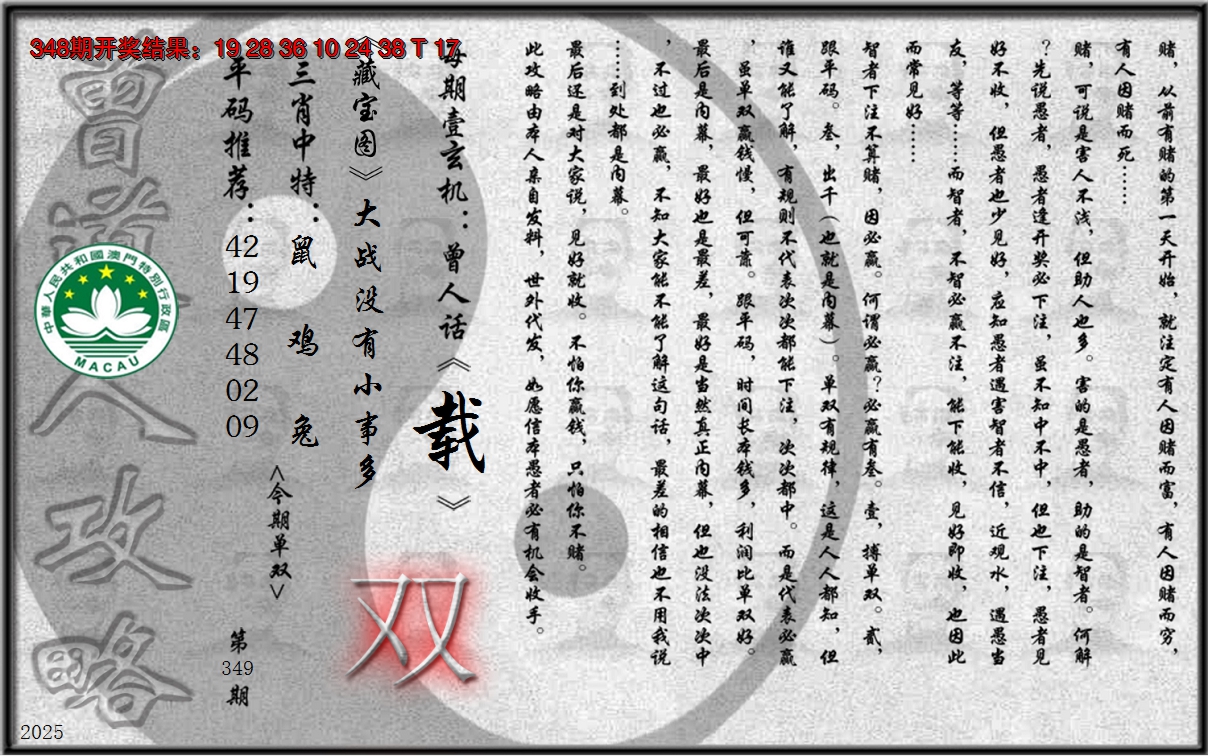 348期开奖结果：19 28 36 10 24 38 T 17
赌，从前有赌的第一天开始，就注定有人因赌而富，有人因赌而穷，
有人因赌而死……
赌，可说是害人不浅，但助人也多。害的是愚者，助的是智者。何解
？先说愚者，愚者逢开奖必下注，虽不知中不中，但也下注，愚者见
好不收，但愚者也少见好，应知愚者遇害智者不信，近观水，遇愚当
友，等等……而智者，不智必赢不注，能下能收，见好即收，也因此
而常见好……
智者下注不算赌，因必赢。何谓必赢？必赢有叁。壹，搏单双。贰，
跟平码。叁，出千（也就是内幕）。单双有规律，这是人人都知，但
谁又能了解，有规则不代表次次都能下注，次次都中。而是代表必赢
，虽单双赢钱慢，但可靠。跟平码，时间长本钱多，利润比单双好。
最后是内幕，最好也是最差，最好是当然真正内幕，但也没法次次中
，不过也必赢，不知大家能不能了解这句话，最差的相信也不用我说
……到处都是内幕。
最后还是对大家说，见好就收。不怕你赢钱，只怕你不赌。
此攻略由本人亲自发料，世外代发，如愿信本愚者必有机会收手。
每期壹玄机：曾人话《载》
《藏宝图》大战没有小事多
双
三肖中特：鼠 鸡 兔
<今期单双>
平码推荐：42 19 47 48 02 09
第349期
曾道人攻略
中華人民共和國澳門特別行政區
MACAU
2025